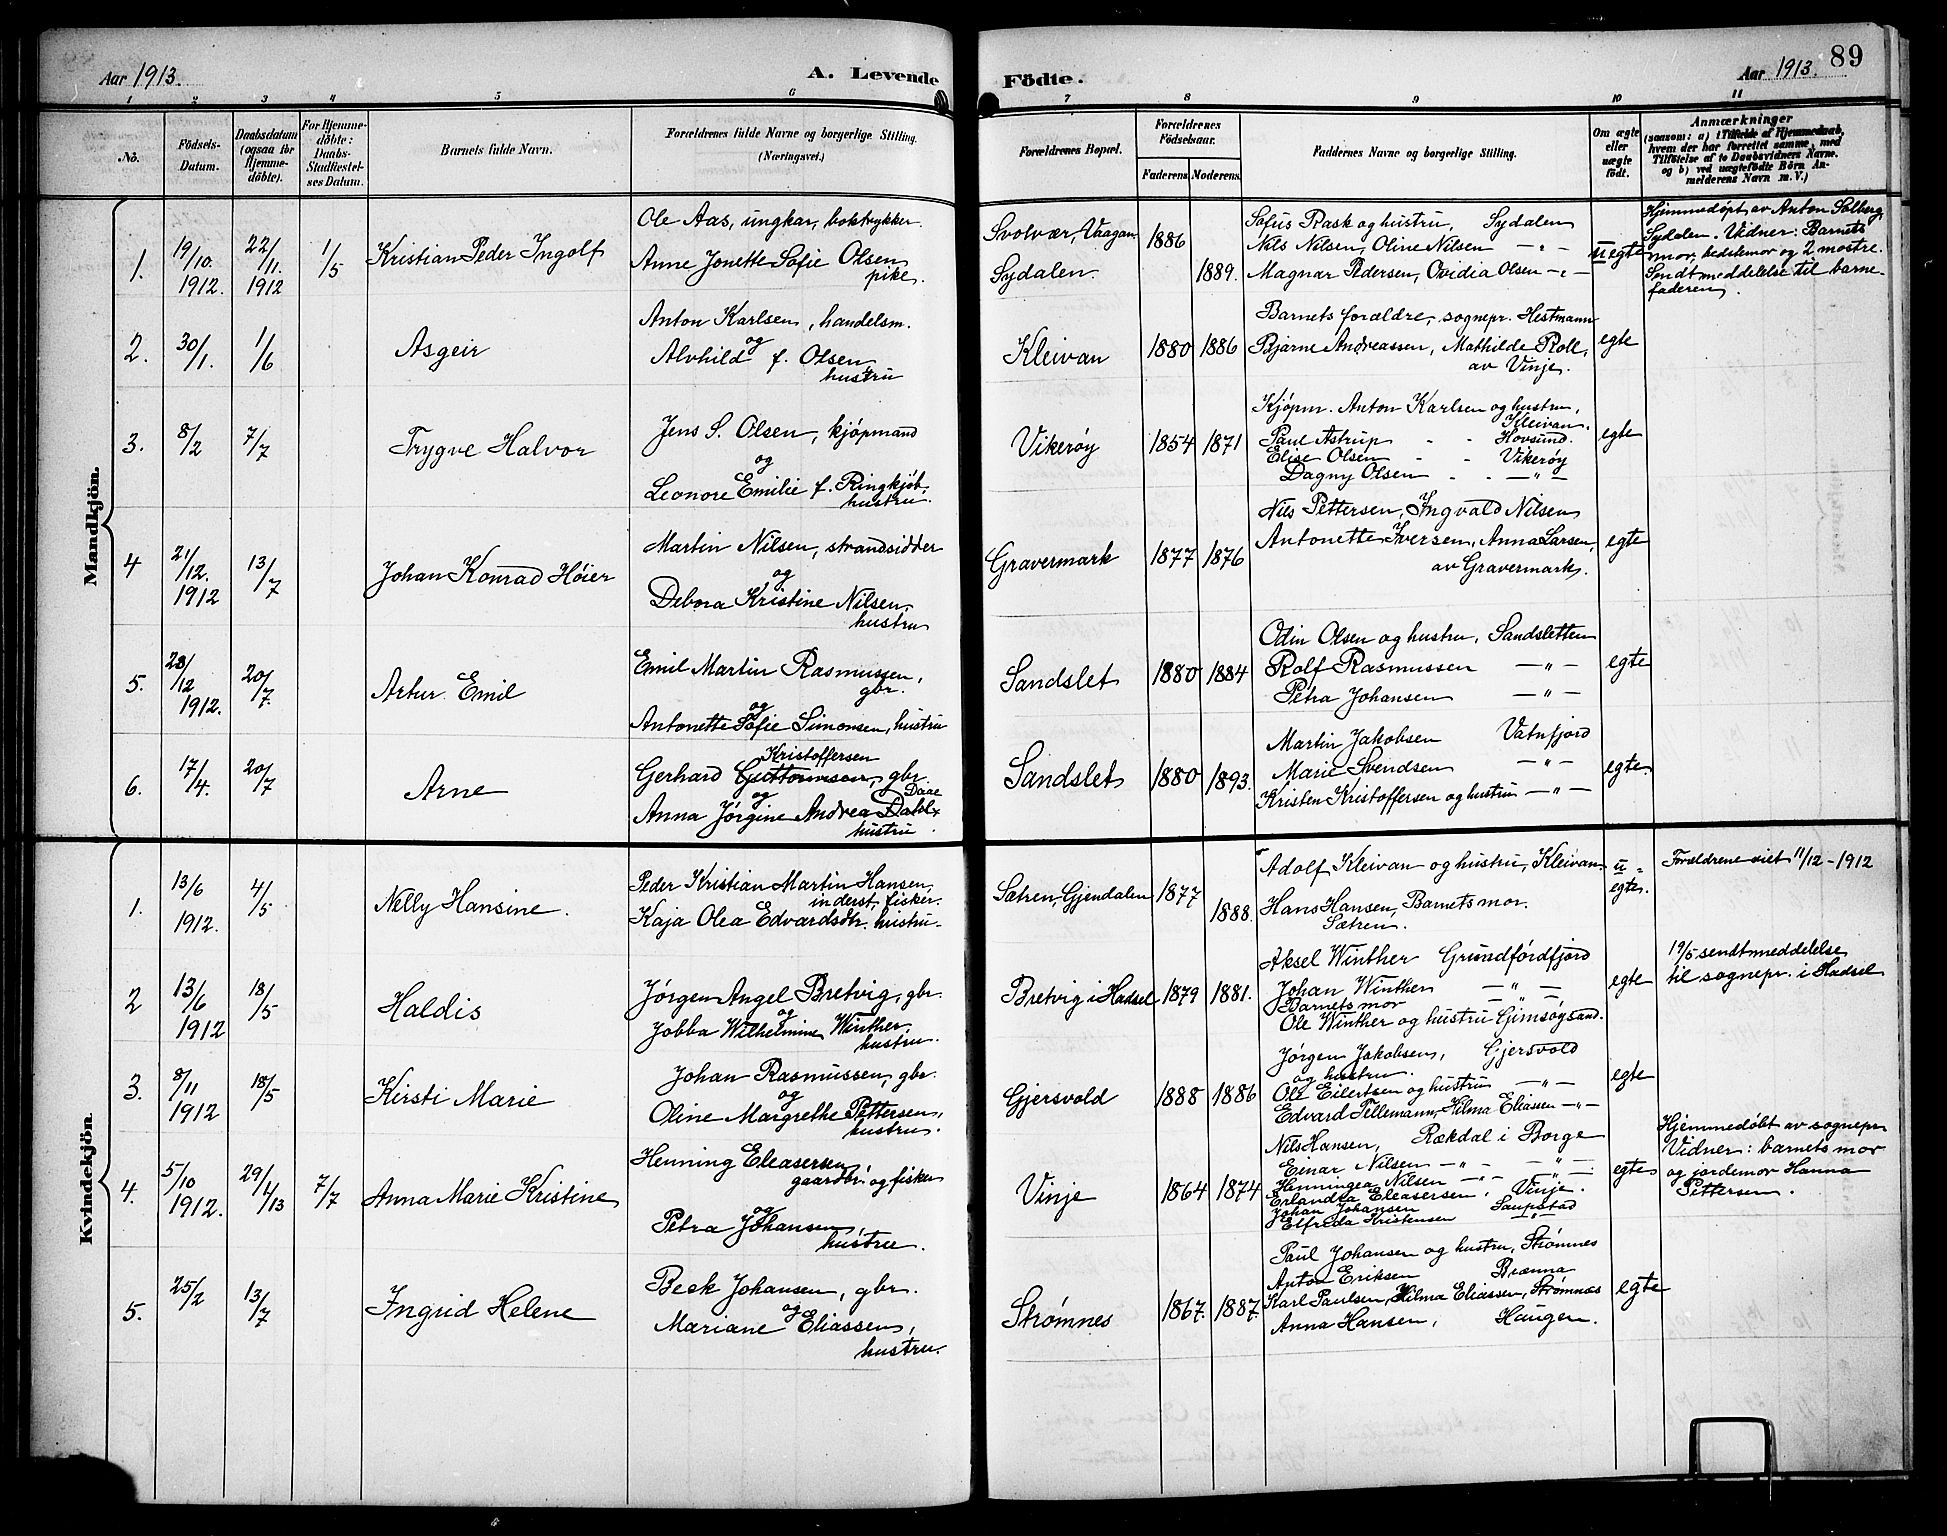 Aar 1913.
A. Levende
Födte.
Aar 1913.
89
1 2 3 4 5 6 7 8 9 10 11
No.
Födsels-Datum.
Daabsdatum (ogsaa for Hjemme-döbte).
For Hjemme-döbte: Daabs-Stadfæstel-ses Datum.
Barnets fulde Navn.
Forældrenes fulde Navne og borgerlige Stilling.
(Næringsvei.)
Forældrenes Bopæl.
Forældrenes Födselsaar.
Faderens. Moderens.
Faddernes Navne og borgerlige Stilling.
Om ægte eller uægte födt.
Anmærkninger
(saasom: a) i Tilfælde af Hjemmedaab,
hvem der har forrettet samme, med
Tilföielse af to Daabsvidners Navne.
og b) ved uægtefödte Börn An-
melderens Navn m. V.)
Mandkjön.
1. 19/10. 1912. 22/11. 1912 1/5 Kristian Peder Ingolf
Ole Aas, ungkar, boktrykker.
Anne Jonette Sofie Olsen
pike.
Svolvær, Vaagan 1886
Sydalen. 1889.
Sofus Rask og hustru, Sydalen
Nils Nilsen, Oline Nilsen — " —
Magnar Pedersen, Ovidia Olsen — " —
uegte
Hjemmedøpt av Anton Solberg,
Sydalen. Vidner: Barnets
mor, bedstemor og 2 mostre.
Sendt meddelelse til barne-
faderen.
2. 30/1. 1/6 Asgeir
Anton Karlsen, handelsm.
og
Alvhild f. Olsen,
hustru
Kleivan 1880 1886
Barnets forældre, sognepr. Hestmann
Bjarne Andreassen, Mathilde Roll,
av Vinje.
egte
3. 8/2 7/7 Trygve Halvor
Jens S. Olsen, kjøpmand
og
Leonore Emilie f. Ringkjøb,
hustru.
Vikerøy 1854 1871
Kjøpm. Anton Karlsen og hustru,
Kleivan.
Paul Astrup - - Hovsund.
Elise Olsen - - Vikerøy
Dagny Olsen - - — " —
egte
4 21/12. 1912 13/7 Johan Konrad Høier
Martin Nilsen, strandsidder
og
Debora Kristine Nilsen,
hustru
Gravermark 1877 1876
Nils Pettersen, Ingvald Nilsen
Antonette Iversen, Anna Larsen,
av Gravermark.
egte
5. 23/12 1912. 20/7. Artur Emil
Emil Martin Rasmussen,
gbr.
og
Antonette Sofie Simonsen, hustru
Sandslet 1880 1884
Odin Olsen og hustru, Sandsletten
Rolf Rasmussen — " —
Petra Johansen — " —
egte
6. 17/4. 20/7 Arne
Kristoffersen
Gerhard Guttormsen, gbr.
og Daae
Anna Jørgine Andrea Dahl
hustru.
Sandslet 1880 1893.
Martin Jakobsen Vatnfjord
Marie Svendsen — " —
Kristen Kristoffersen og hustru — " —
egte.
Kvindekjön.
1. 13/6 1912. 4/5 Nelly Hansine.
Peder Kristian Martin Hansen,
inderst, fisker.
Kaja Olea Edvardsdtr. hustru.
Sætren, Gjendalen 1877 1888.
Adolf Kleivan og hustru, Kleivan.
Hans Hansen, Barnets mor.
Sætren.
u-egte.
Forældrene viet 11/12-1912
2 13/6 1912 18/5 Haldis
Jørgen Angel Bretvig, gbr.
og
Jobba Wilhelmine Winther,
hustru.
Bretvig i Hadsel 1879 1881.
Aksel Winther Grundførdfjord
Johan Winther — " —
Barnets mor — " —
Ole Winther og hustru Gimsøysand.
egte
19/5 sendt meddelelse
til sognepr. i Hadsel
3. 8/11 1912 18/5 Kirsti Marie
Johan Rasmussen, gbr.
og
Oline Margrethe Pettersen,
hustru.
Gjersvold 1888 1886
Jørgen Jakobsen, Gjersvold
og hustru.
Ole Eilertsen og hustru — " —
Edvard Tellemann, Hilma Eliassen — " —
egte
4. 5/10 1912. 29/4/13 7/7 Anna Marie Kristine
Henning Eleasersen
gaardbr. og fisker
og
Petra Johansen,
hustru.
Vinje 1864 1874
Nils Hansen, Rækdal i Borge
Einar Nilsen — " — — " —
Henningea Nilsen — " — — " —
Erlandia Eleasersen, Vinje.
Johan Johansen Saupstad
Elfreda Kristensen — " —
egte
Hjemmedøbt av sognepr
Vidner: barnets mor
og jordemor Hanna
Pettersen.
5. 25/2 13/7 Ingrid Helene
Beck Johansen, gbr.
og
Mariane Eliassen,
hustru.
Strømnes 1867. 1887.
Paul Johansen og hustru, Strømnes
Anton Eriksen Brenna
Karl Paulsen, Hilma Eliassen, Strømnes
Anna Hansen, Haugen.
egte